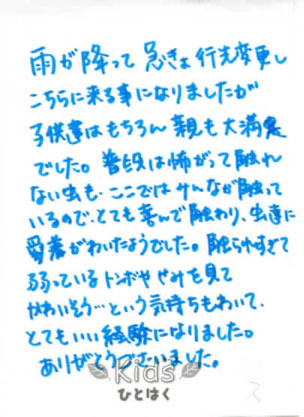 雨が降って 急きょ 行先変更し
こちらに来る事になりましたが
子供達はもちろん 親も大満足
でした。普段は怖がって触れ
ない虫も、ここではみんなが触って
いるので、とても喜んで触わり、虫達に
愛着がわいたようでした。触られすぎて
弱っているトンボや せみを見て
かわいそう…という気持ちもわいて、
とてもいい経験になりました。
ありがとうございました。
Kids
ひとはく